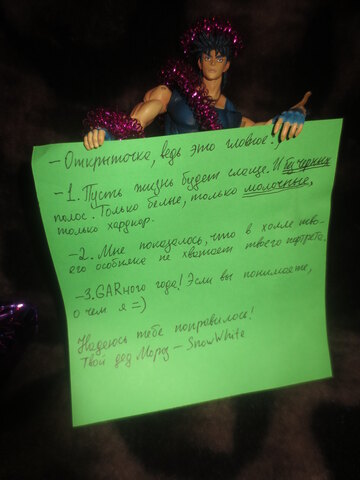 – Открыточка, ведь это главное!
– 1. Пусть жизнь будет слаще. И без черных
полос. Только белые, только молочные,
только хардкор.
– 2. Мне показалось, что в холле тво-
его особняка не хватает твоего портрета.
– 3. GARного года! Если вы понимаете,
о чем я =)
Надеюсь тебе понравилось!
Твой дед Мороз – SnowWhite